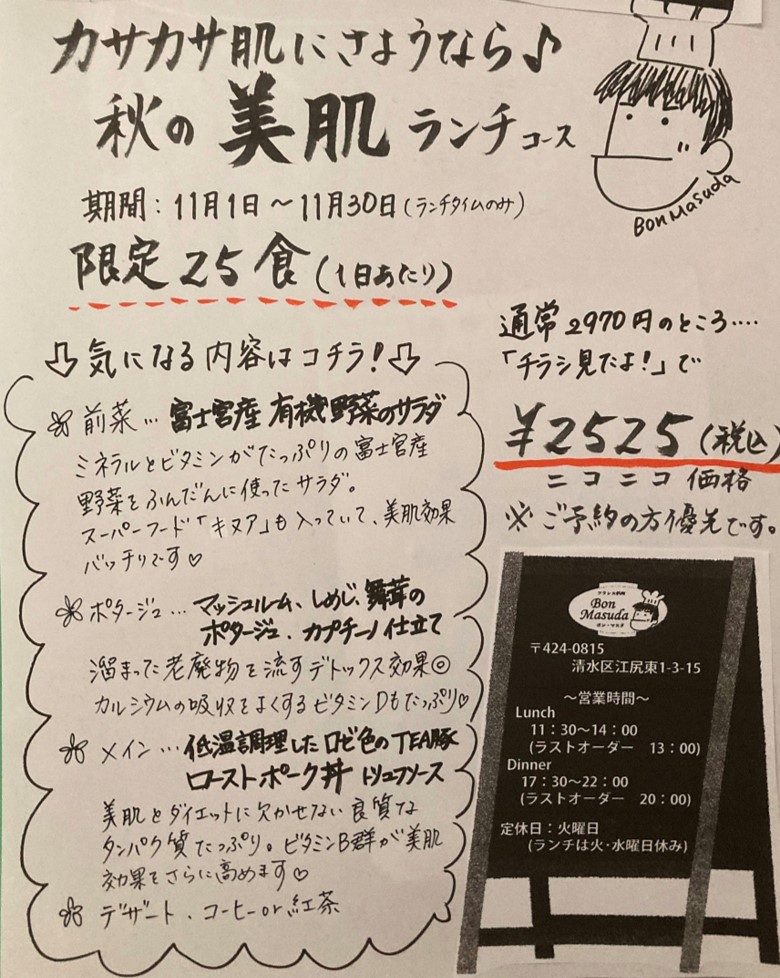 カサカサ肌にさようなら♪
秋の美肌ランチコース
Bon Masuda
期間：11月1日～11月30日（ランチタイムのみ）
限定25食（1日あたり）
通常2970円のところ‥‥
「チラシ見たよ！」で
¥2525（税込）
ニコニコ価格
※ご予約の方優先です。
⇩気になる内容はコチラ！⇩
前菜…富士宮産 有機野菜のサラダ
ミネラルとビタミンがたっぷりの富士宮産
野菜をふんだんに使ったサラダ。
スーパーフード「キヌア」も入っていて、美肌効果
バッチリです♡
ポタージュ…マッシュルーム、しめじ、舞茸の
ポタージュ、カプチーノ仕立て
溜まった老廃物を流すデトックス効果◎
カルシウムの吸収をよくするビタミンDもたっぷり♡
メイン…低温調理したロゼ色のTEA豚
ローストポーク丼 トリュフソース
美肌とダイエットに欠かせない良質な
タンパク質たっぷり。ビタミンB群が美肌
効果をさらに高めます♡
デザート、コーヒーor紅茶
フランス料理
Bon
Masuda
ボン・マスダ
〒424-0815
清水区江尻東1-3-15
～営業時間～
Lunch
11：30～14：00
(ラストオーダー 13：00)
Dinner
17：30～22：00
(ラストオーダー 20：00)
定休日：火曜日
(ランチは火・水曜日休み)